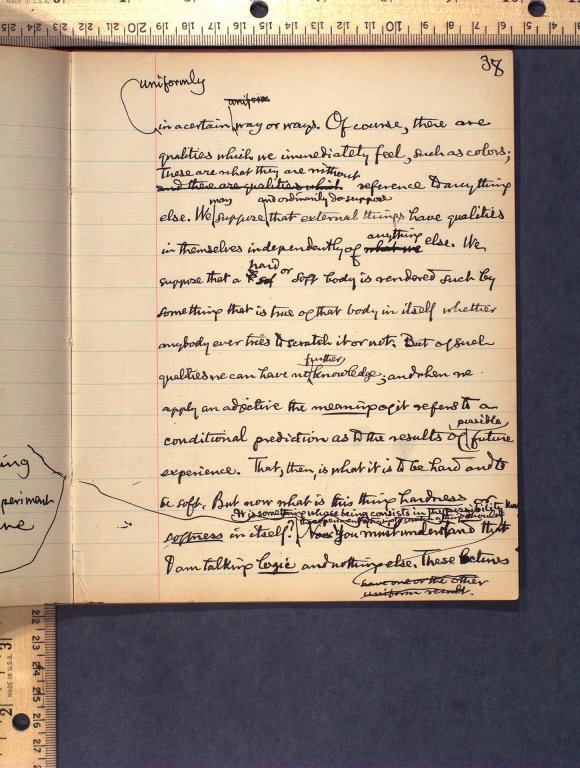 38
uniformly
uniform
in a certain way or ways. Of course, there are
qualities which we immediately feel, such as colors;
These are what they are without
and these are qualities which reference to anything
may and ordinarily do suppose
else. We suppose that external things have qualities
anything
in themselves independently of what we else. We
hard
suppose that a sof or soft body is rendered such by
something that is true of that body in itself whether
anybody ever tries to scratch it or not. But of such
further
qualities we can have no knowledge; and when we
apply an adjective the meaning of it refers to a
possible
conditional prediction as to the results of future
experience. That, then, is what it is to be hard and to
be soft. But now what is this thing hardness or
It is something whose being consists in the possibility that
the experiment should
softness in itself? Now you must understand that
I am talking logic and nothing else. These lectures
have one or the other
uniform result.
ing
periment
ne
MADE IN U.S.A.
20 19 18 17 16 15 14 13 12 11 10 9 8 7 6 5 4
22 23 24 25 26 27
3
2
MADE IN U.S.A.